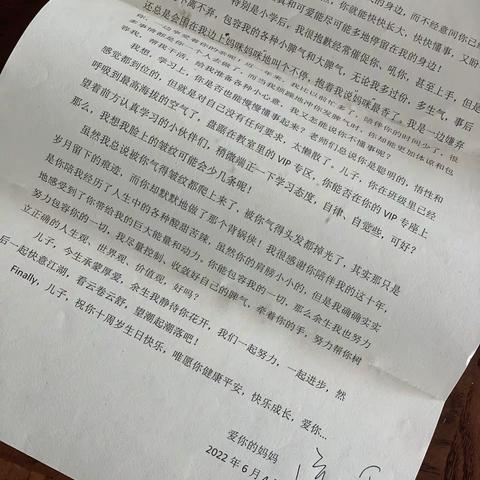 你就能快快长大，快快懂事，又盼
的身边，而不经意间你已经
我和可爱能尽可能多地停留在我的身边！
特别是小学后，我很抱歉经常催促你、吼你，甚至上手，但是
不离不弃，包容我的各种小脾气和大脾气，无论我多过份，多生气，事后
还总是会围在我边上妈咪妈咪地叫个不停，抱着我说妈咪最香了。我是一边嫌弃
感觉都到位的，但就是对自己没有任何要求，太懒散了。儿子，你在班级里已经
我想，学习上，你是否也能慢慢懂事起来？老师们总说你是聪明的，悟性和
呼吸到最高海拔的空气了，盘踞在教室里的 VIP 专区，你能否在你的 VIP 专座上
望着前方认真学习的小伙伴们，稍微端正一下学习态度，自律、自觉些，可好？
那么，我想我脸上的皱纹可能会少几条呢！
虽然我总说被你气得皱纹都爬上来了，被你气得头发都掉光了，其实那只是
岁月留下的痕迹，而你却默默地做了那个背锅侠！我很感谢你陪伴我的这十年，
是你陪我经历了人生中的各种酸甜苦辣，虽然你的肩膀小小的，但是我确确实实
地感受到了你带给我的巨大能量和动力。你能包容我的一切，那么余生我也努力
努力包容你的一切，我尽量控制、收敛好自己的脾气，牵着你的手，努力帮你树
立正确的人生观、世界观、价值观，好吗？
儿子，今生承蒙厚爱，余生我静待你花开，我们一起努力，一起进步，然
后一起快意江湖，看云卷云舒，望潮起潮落吧！
Finally，儿子，祝你十周岁生日快乐，唯愿你健康平安，快乐成长，爱你…
爱你的妈妈
2022 年 6 月